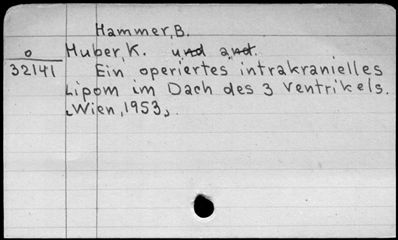 Hammer, B.
o Huber, K. und and.
32141 Ein operiertes intrakranielles
Lipom im Dach des 3 Ventrikels.
Wien, 1953,.